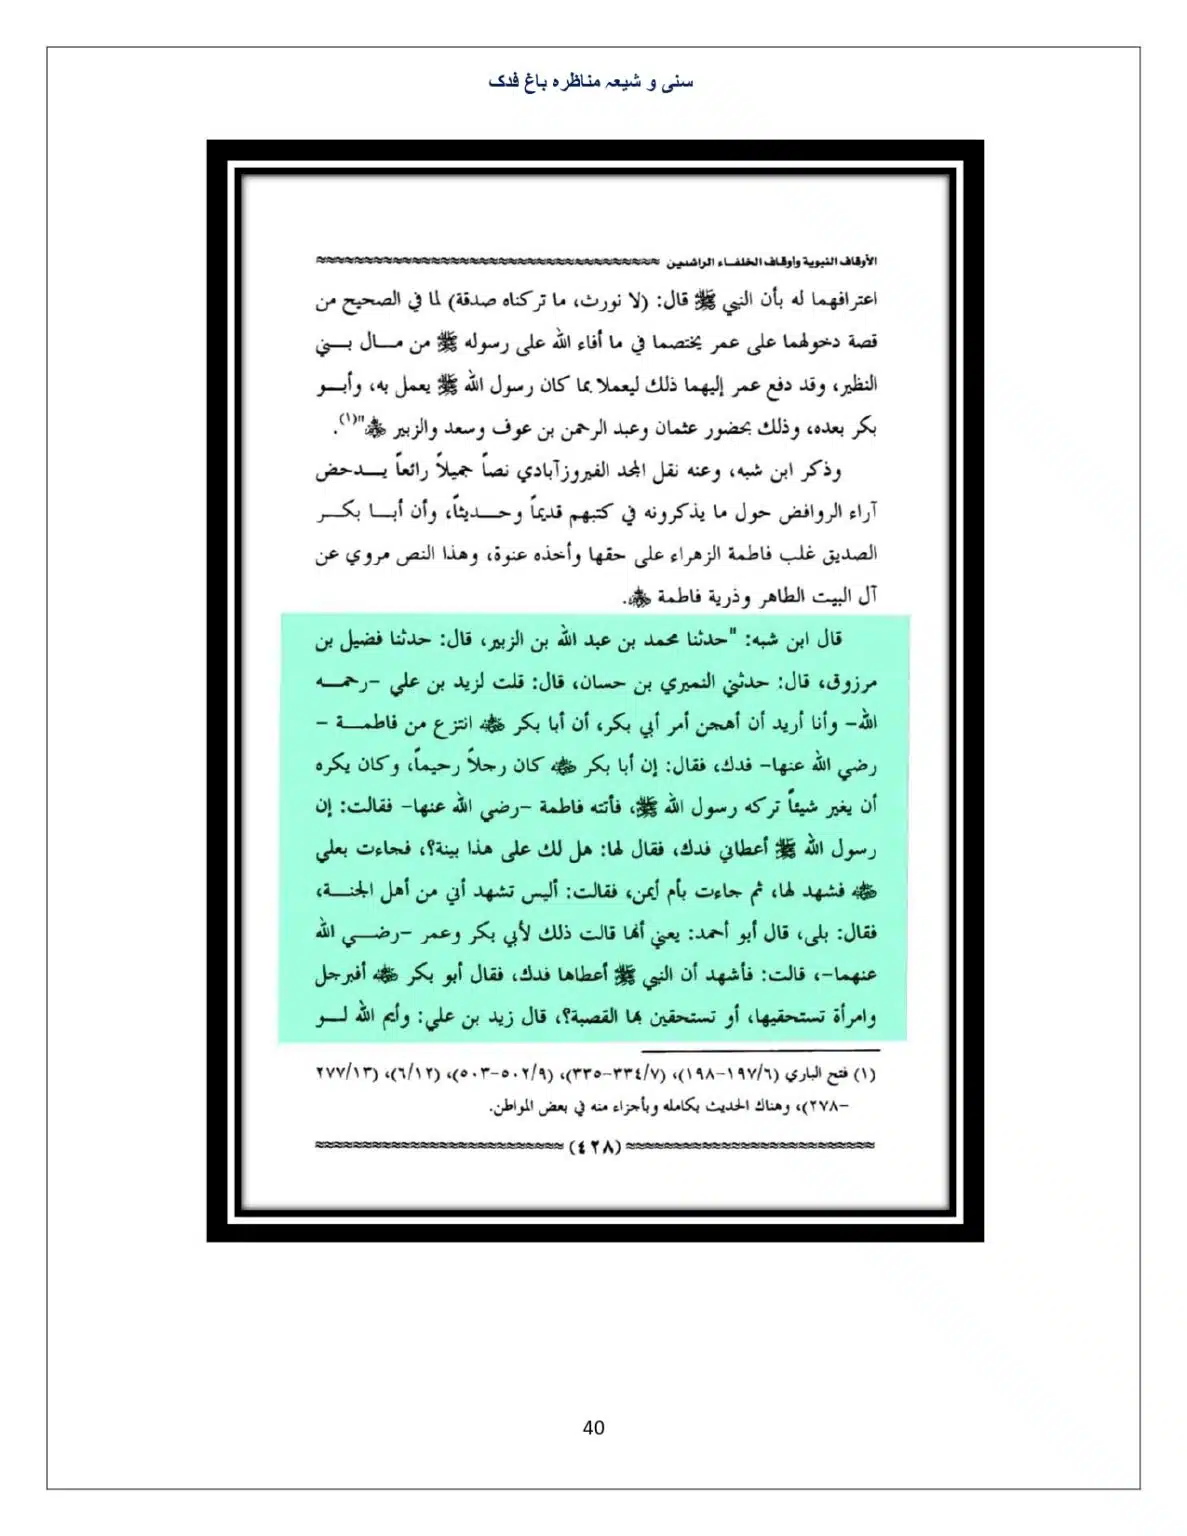 سنی و شیعہ مناظرہ باغ فدک
الأوقاف النبوية وأوقاف الخلفاء الراشدين
اعترافهما له بأن النبي ﷺ قال: (لا نورث، ما تركناه صدقة) لما في الصحيح من
قصة دخولهما على عمر يختصما في ما أفاء الله على رسوله ﷺ من مال بني
النظير، وقد دفع عمر إليهما ذلك ليعملا بما كان رسول الله ﷺ يعمل به، وأبو
بكر بعده، وذلك بحضور عثمان وعبد الرحمن بن عوف وسعد والزبير ﷺ"(١).
وذكر ابن شبه، وعنه نقل المجد الفيروزآبادي نصاً جميلاً رائعاً يدحض
آراء الروافض حول ما يذكرونه في كتبهم قديماً وحديثاً، وأن أبا بكر
الصديق غلب فاطمة الزهراء على حقها وأخذه عنوة، وهذا النص مروي عن
آل البيت الطاهر وذرية فاطمة.
قال ابن شبه: "حدثنا محمد بن عبد الله بن الزبير، قال: حدثنا فضيل بن
مرزوق، قال: حدثني النميري بن حسان، قال: قلت لزيد بن علي –رحمه
الله– وأنا أريد أن أهجن أمر أبي بكر، أن أبا بكر انتزع من فاطمة –
رضي الله عنها– فدك، فقال: إن أبا بكر كان رجلاً رحيماً، وكان يكره
أن يغير شيئاً تركه رسول الله ﷺ، فأتته فاطمة –رضي الله عنها– فقالت: إن
رسول الله ﷺ أعطاني فدك، فقال لها: هل لك على هذا بينة؟، فجاءت بعلي
فشهد لها، ثم جاءت بأم أيمن، فقالت: أليس تشهد أني من أهل الجنة،
فقال: بلى، قال أبو أحمد: يعني أنها قالت ذلك لأبي بكر وعمر –رضي الله
عنهما–، قالت: فأشهد أن النبي ﷺ أعطاها فدك، فقال أبو بكر أفبرجل
وامرأة تستحقيها، أو تستحقين بها القصبة؟، قال زيد بن علي: وأيم الله لو
(١) فتح الباري (١٩٧/٦–١٩٨)، (٣٣٤/٧–٣٣٥)، (٥٠٢/٩–٥٠٣)، (٦/١٢)، (٢٧٧/١٣
–٢٧٨)، وهناك الحديث بكامله وبأجزاء منه في بعض المواطن.
(٤٢٨)
40